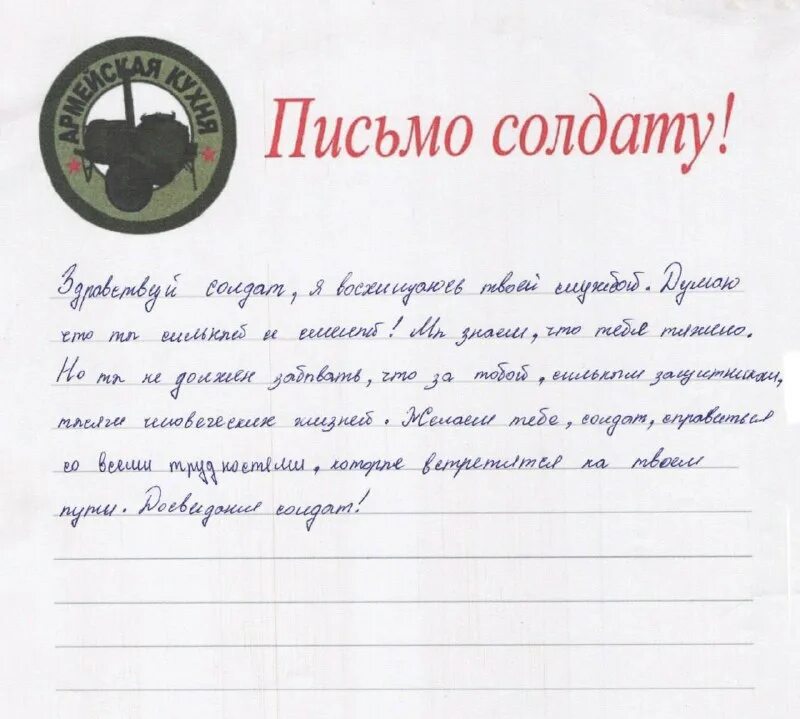 АРМЕЙСКАЯ КУХНЯ
Письмо солдату!
Здравствуй солдат, я восхищаюсь твоей службой. Думаю
что ты сильный и смелый! Мы знаем, что тебе тяжело.
Но ты не должен забывать, что за тобой, сильным защитником,
тысячи человеческих жизней. Желаем тебе, солдат, справиться
со всеми трудностями, которые встретятся на твоем
пути. Досвидания солдат!